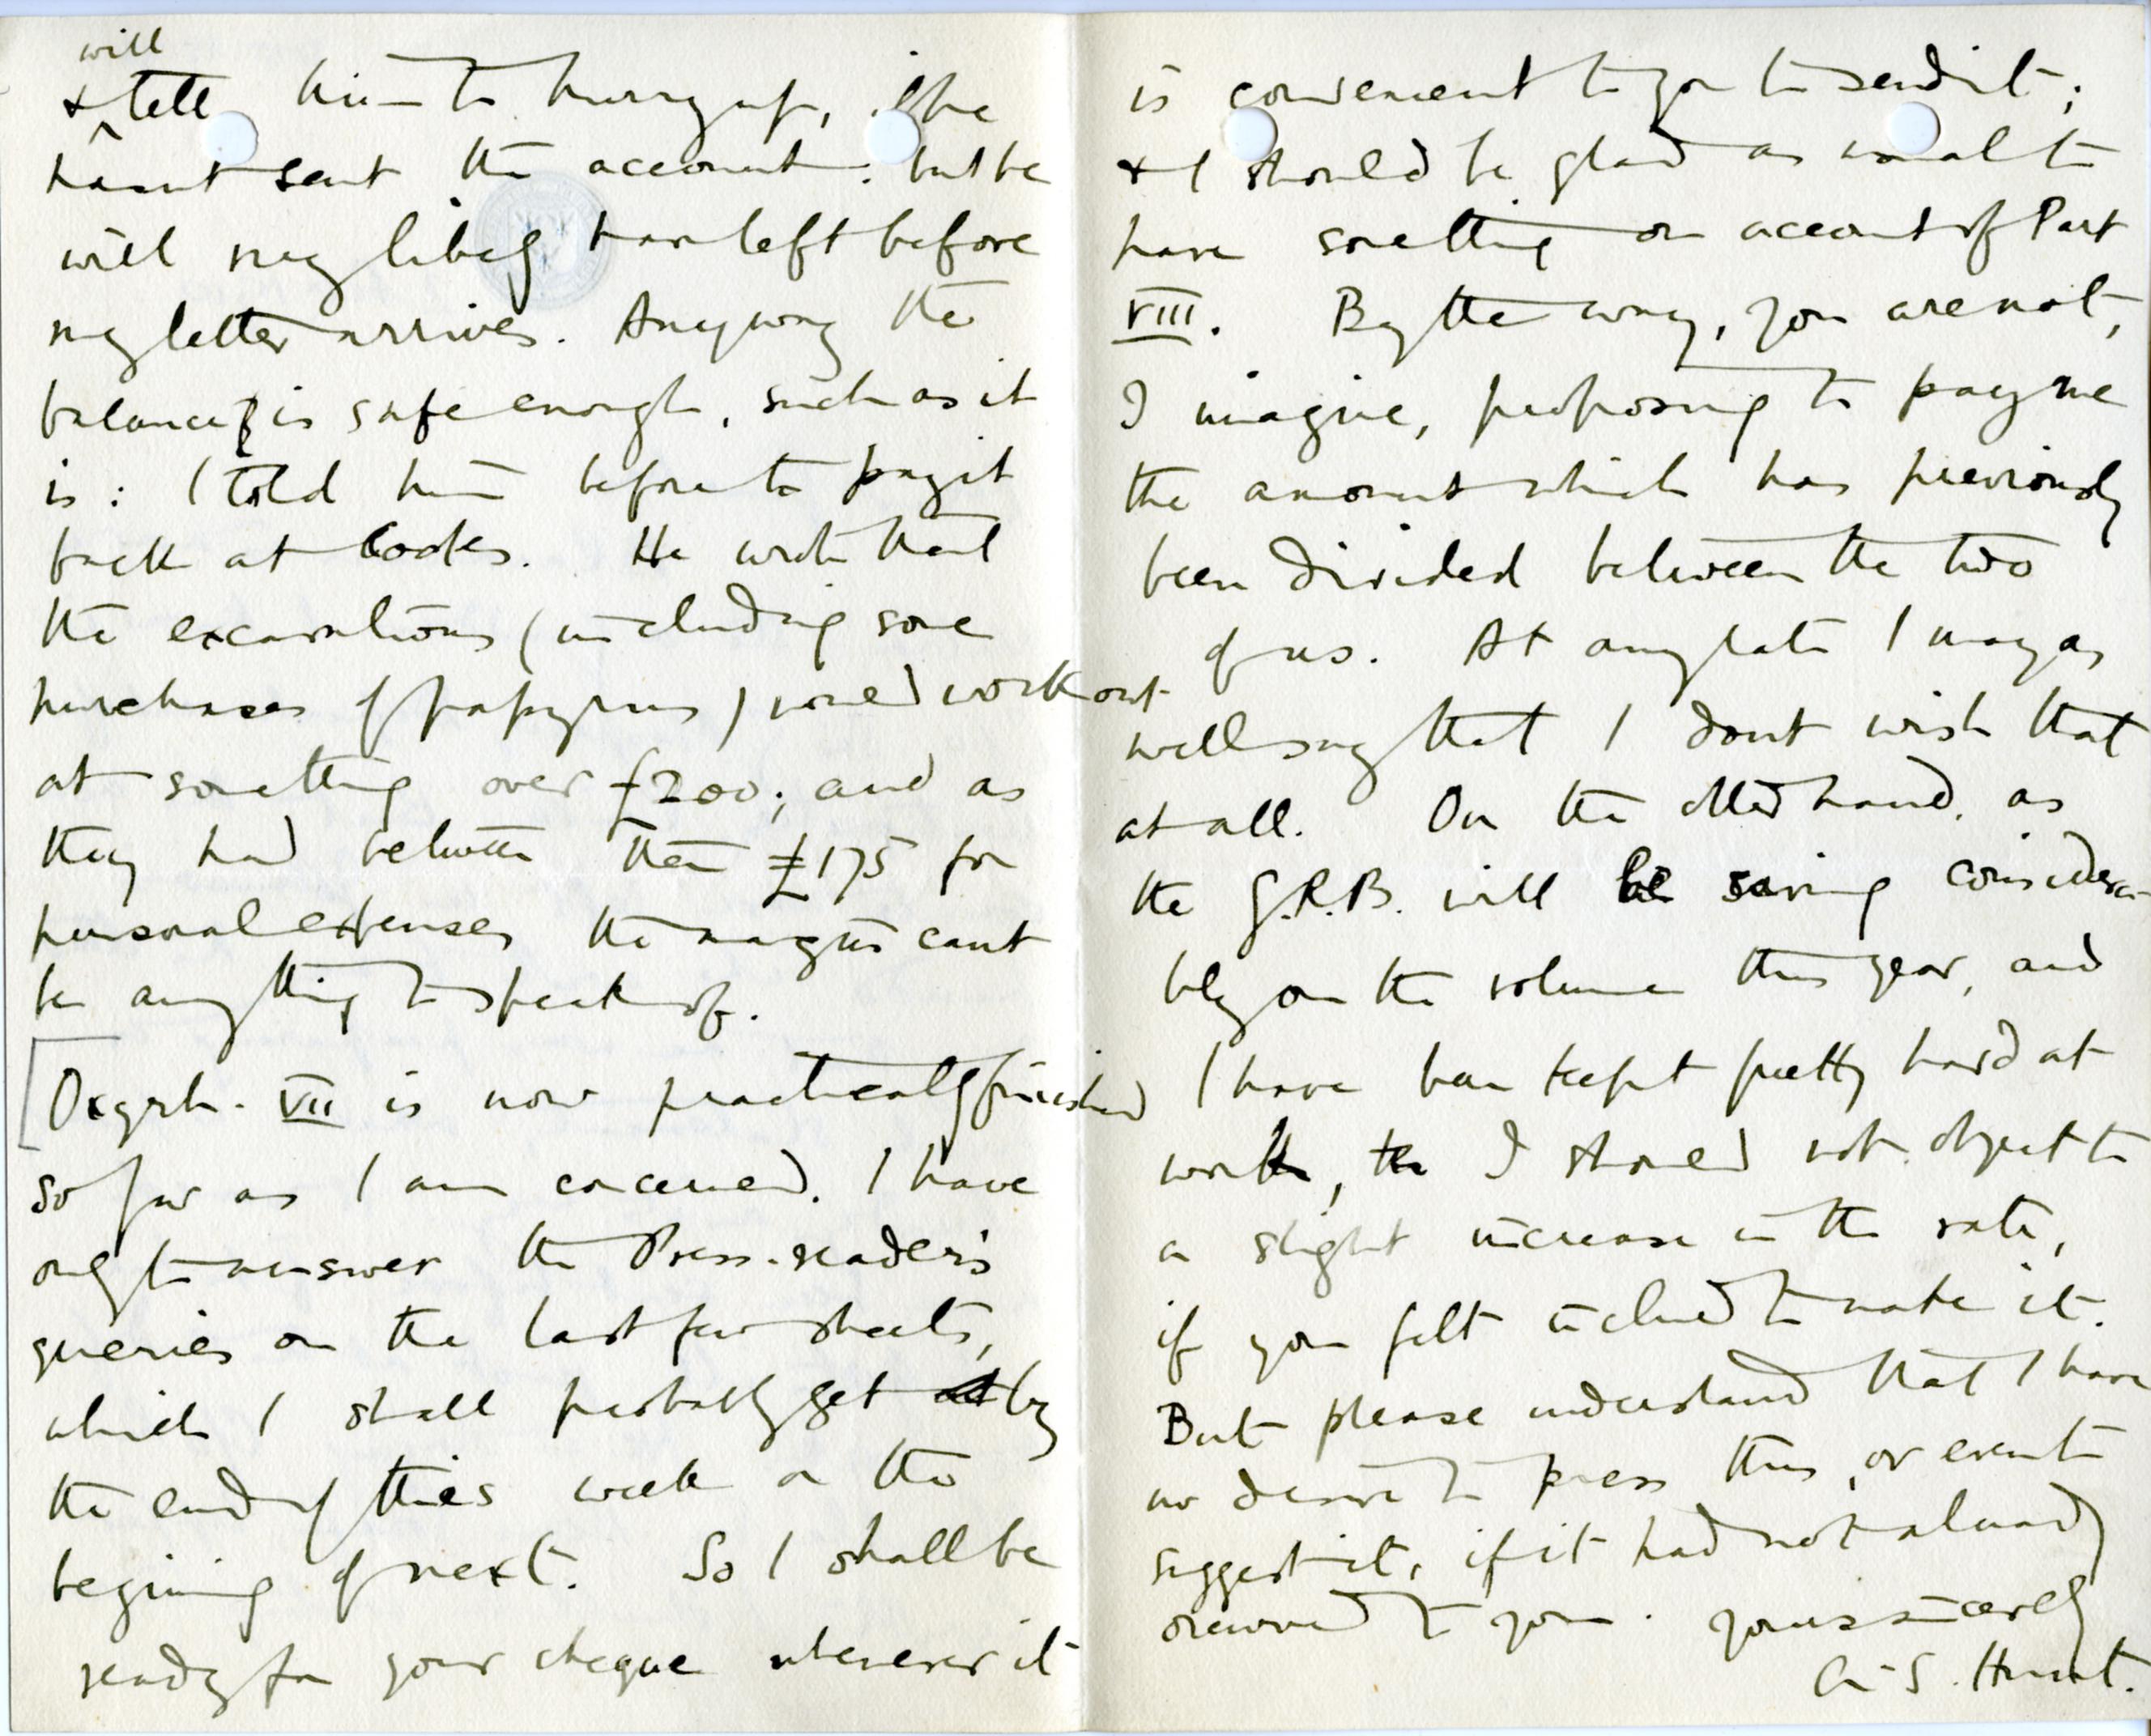 will
& tell him to hurry up, if he
hasnt sent the account: but he
will very likely have left before
my letter arrives. Anyway the
balance is safe enough, such as it
is: I told him before to pay it
back at Cooks. He wrote that
the excavations (including some
purchases of papyrus) would work out
at something over £200; and as
they had between them £175 for
personal expenses the margin cant
be anything to speak of.
Oxyrh. VII is now practically finished
so far as I am concerned. I have
only to answer the Press-reader's
queries on the last few sheets,
which I shall probably get at by
the end of this week or the
begining of next. So I shall be
ready for your cheque whenever it
is convenient to you to send it;
& I should be glad as usual to
have something on account of Part
VIII. By the way, you are not,
I imagine, proposing to pay me
the amount which has previously
been divided between the two
of us. At any rate I may as
well say that I dont wish that
at all. On the other hand, as
the G.R.B. will be saving considera-
bly on the volume this year, and
I have been kept pretty hard at
work, I should not object to
a slight increase in the rate,
if you felt inclined to make it.
But please understand that I have
no desire to press this, or even to
suggest it, if it had not already
occurred to you. Yours sincerely
A. S. Hunt.